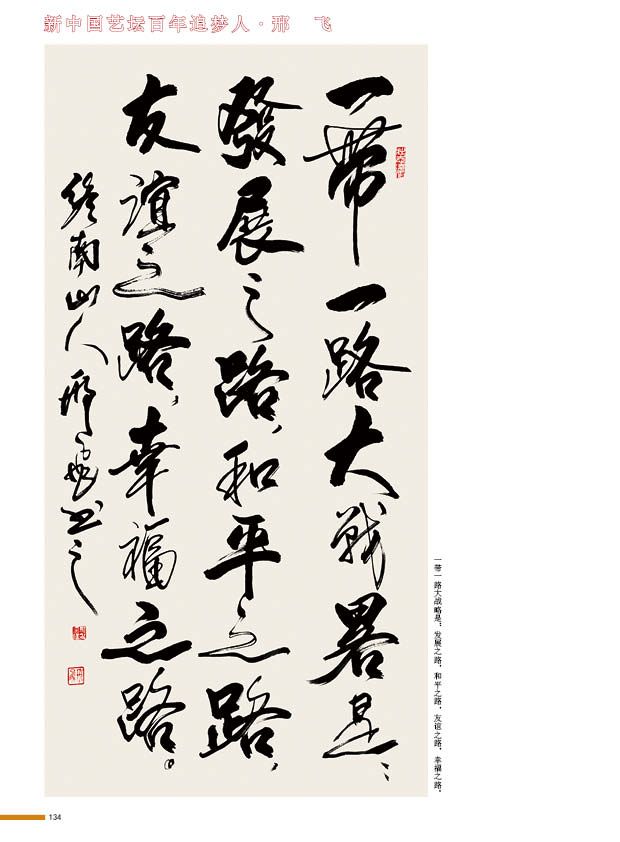 新中国艺坛百年追梦人·邢　飞
一带一路大戰畧是：
發展之路，和平之路，
友谊之路，幸福之路。
终南山人邢飛书之
一带一路大战略是：发展之路，和平之路，友谊之路，幸福之路。
134